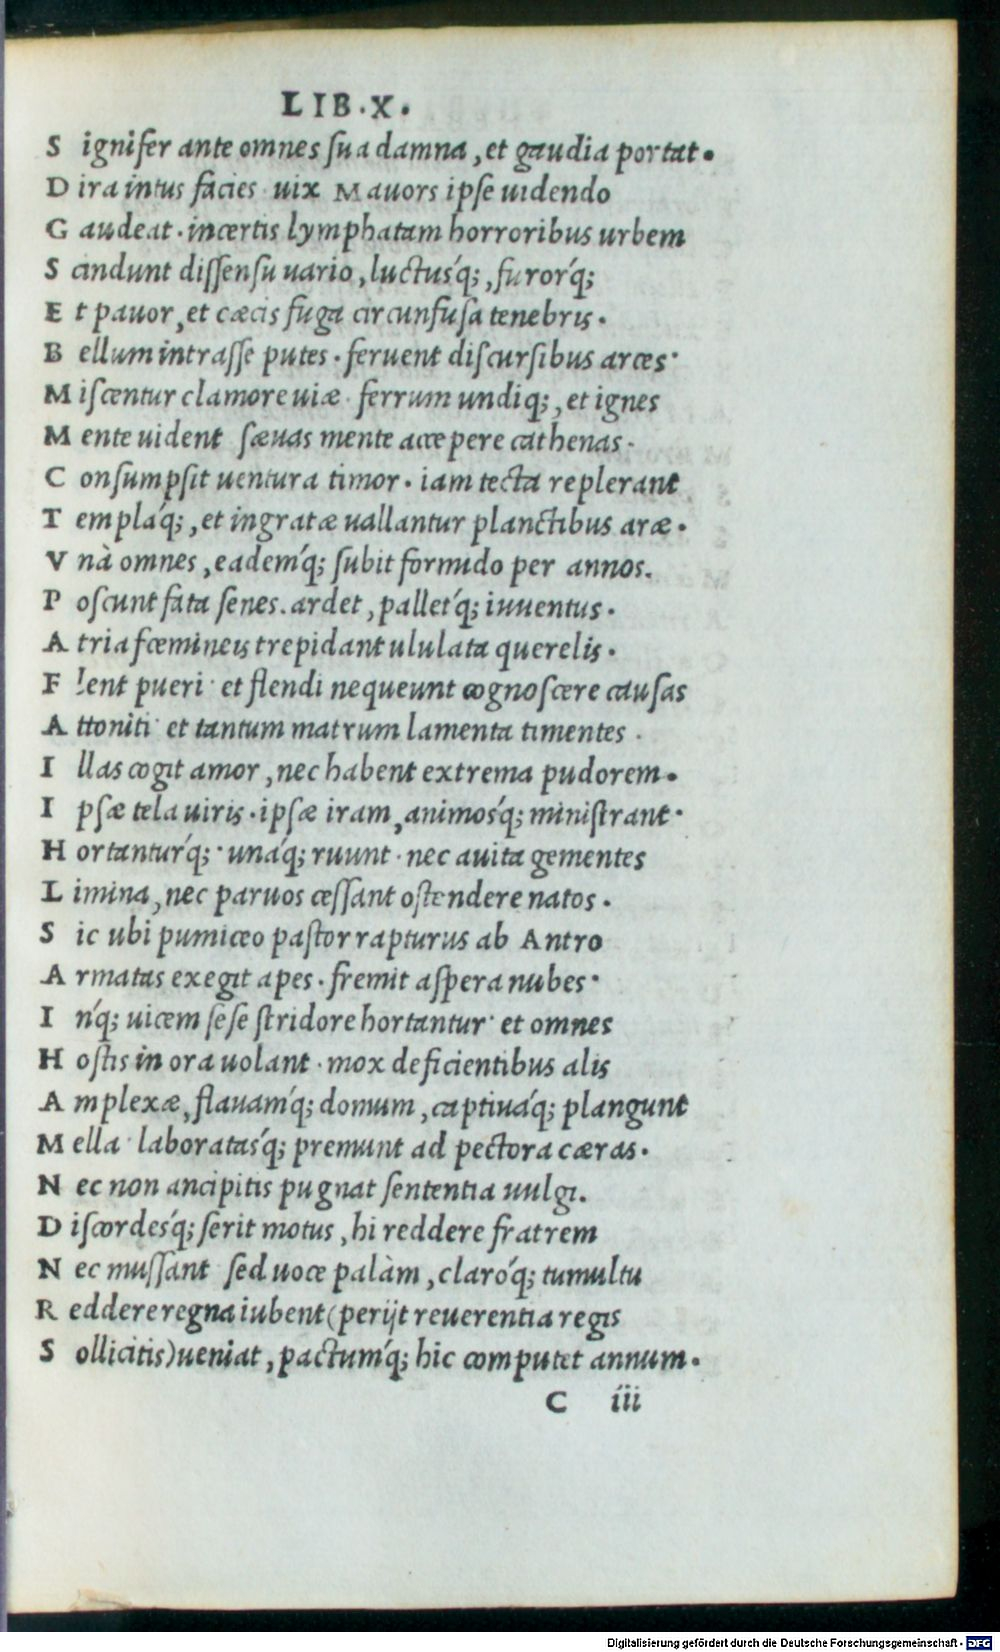 LIB.X.
S ignifer ante omnes sua damna, et gaudia portat.
D ira intus facies uix Mauors ipse uidendo
G audeat. incertis lymphatam horroribus urbem
S cindunt dissensu uario, luctusq́;, furorq́;
E t pauor, et cæcis fuga circunfusa tenebris.
B ellum intrasse putes. feruent discursibus arces·
M iscentur clamore uiæ· ferrum undiq;, et ignes
M ente uident sæuas mente accepere cathenas·
C onsumpsit uentura timor. iam tecta replerant
T emplaq́;, et ingratæ uallantur planctibus aræ.
V nà omnes, eademq́; subit formido per annos.
P oscunt fata senes. ardet, palletq́; iuuentus.
A tria fœmineis trepidant ululata querelis.
F lent pueri· et flendi nequeunt cognoscere causas
A ttoniti· et tantum matrum lamenta timentes.
I llas cogit amor, nec habent extrema pudorem.
I psæ tela uiris. ipsæ iram, animosq́; ministrant·
H ortanturq́;· unaq́; ruunt· nec auita gementes
L imina, nec paruos cessant ostendere natos.
S ic ubi pumiceo pastor rapturus ab Antro
A rmatas exegit apes. fremit aspera nubes·
I nq́; uicem sese stridore hortantur· et omnes
H ostis in ora uolant· mox deficientibus alis
A mplexæ, flauamq́; domum, captiuaq́; plangunt
M ella· laboratasq́; premunt ad pectora cæras.
N ec non ancipitis pugnat sententia uulgi.
D iscordesq́; serit motus, hi reddere fratrem
N ec mussant sed uoce palàm, claroq́; tumultu
R eddere regna iubent (perijt reuerentia regis
S ollicitis) ueniat, pactumq́; hic computet annum.
C iii
Digitalisierung gefördert durch die Deutsche Forschungsgemeinschaft - DFG